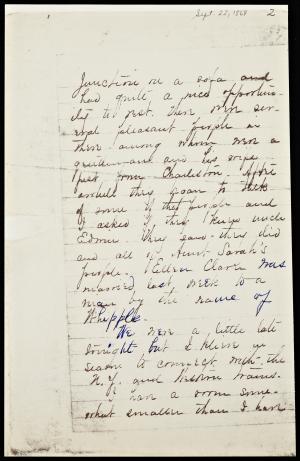 Sept. 22, 1868 2
Junction on a sofa and
had quite a nice opportuni-
ty to rest. There were sev-
eral pleasant people in
there among whom were a
gentleman and his wife
just from Charleston. After
awhile they began to talk
of some of their people and
I asked if they knew uncle
Edwin. They said they did
and all of Aunt Sarah's
people. Ellen Clara was
married last week to a
man by the name of
Whipple.
We were a little late
tonight but I believe in
season to connect with the
N.Y. and Western trains.
I have a room some-
what smaller than I have